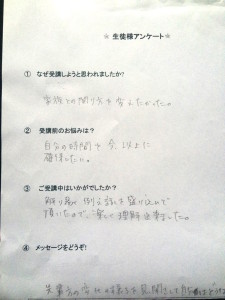 ★ 生徒様アンケート★
① なぜ受講しようと思われましたか?
家族との関り方を考えたかった。
② 受講前のお悩みは?
自分の時間を今以上に
確保したい。
③ ご受講中はいかがでしたか?
解り易い例え話を盛り込んで
頂いたので、楽しく理解出来ました。
④ メッセージをどうぞ!